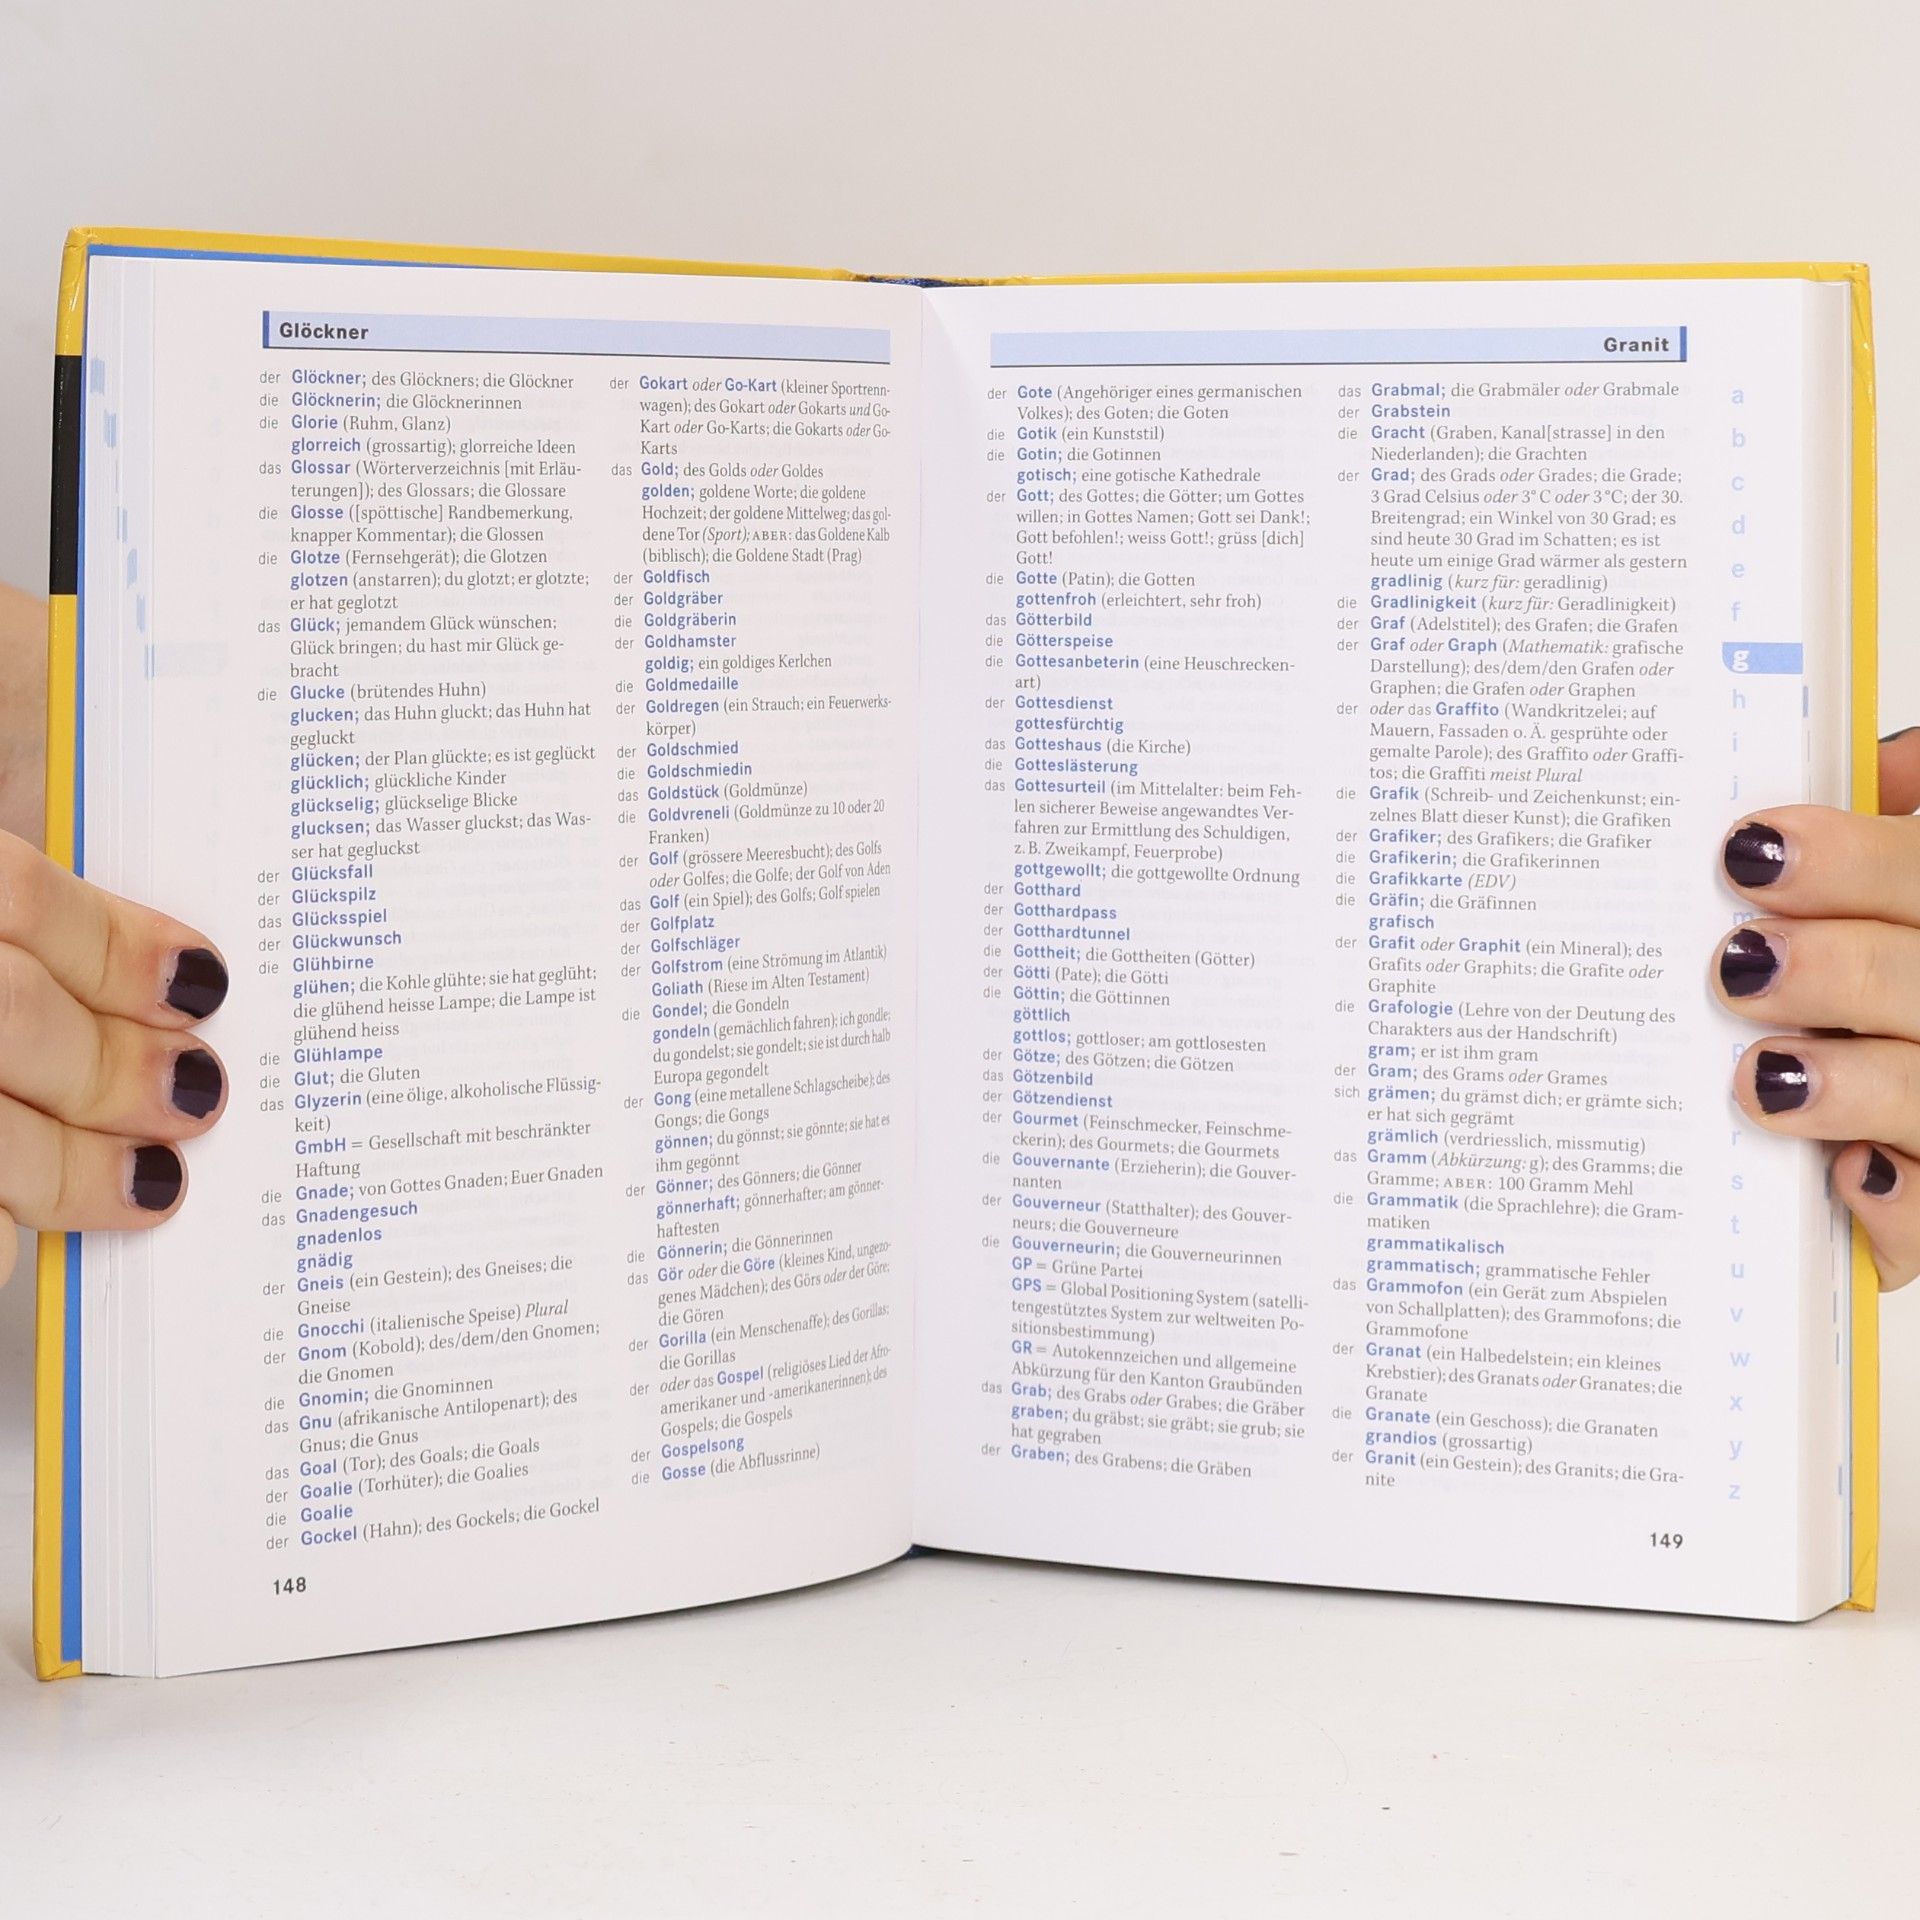 Glöckner
der Glöckner; des Glöckners; die Glöckner
die Glöcknerin; die Glöcknerinnen
die Glorie (Ruhm, Glanz)
glorreich (grossartig); glorreiche Ideen
das Glossar (Wörterverzeichnis [mit Erläu-
terungen]); des Glossars; die Glossare
die Glosse ([spöttische] Randbemerkung,
knapper Kommentar); die Glossen
die Glotze (Fernsehgerät); die Glotzen
glotzen (anstarren); du glotzt; er glotzte;
er hat geglotzt
das Glück; jemandem Glück wünschen;
Glück bringen; du hast mir Glück ge-
bracht
die Glucke (brütendes Huhn)
glucken; das Huhn gluckt; das Huhn hat
gegluckt
glücken; der Plan glückte; es ist geglückt
glücklich; glückliche Kinder
glückselig; glückselige Blicke
glucksen; das Wasser gluckst; das Was-
ser hat gegluckst
der Glücksfall
der Glückspilz
das Glücksspiel
der Glückwunsch
die Glühbirne
glühen; die Kohle glühte; sie hat geglüht;
die glühend heisse Lampe; die Lampe ist
glühend heiss
die Glühlampe
die Glut; die Gluten
das Glyzerin (eine ölige, alkoholische Flüssig-
keit)
GmbH = Gesellschaft mit beschränkter
Haftung
die Gnade; von Gottes Gnaden; Euer Gnaden
das Gnadengesuch
gnadenlos
gnädig
der Gneis (ein Gestein); des Gneises; die
Gneise
die Gnocchi (italienische Speise) Plural
der Gnom (Kobold); des/dem/den Gnomen;
die Gnomen
die Gnomin; die Gnominnen
das Gnu (afrikanische Antilopenart); des
Gnus; die Gnus
das Goal (Tor); des Goals; die Goals
der Goalie (Torhüter); die Goalies
die Goalie
der Gockel (Hahn); des Gockels; die Gockel
148
der Gokart oder Go-Kart (kleiner Sportrenn-
wagen); des Gokart oder Gokarts und Go-
Kart oder Go-Karts; die Gokarts oder Go-
Karts
das Gold; des Golds oder Goldes
golden; goldene Worte; die goldene
Hochzeit; der goldene Mittelweg; das gol-
dene Tor (Sport); ABER: das Goldene Kalb
(biblisch); die Goldene Stadt (Prag)
der Goldfisch
der Goldgräber
die Goldgräberin
der Goldhamster
goldig; ein goldiges Kerlchen
die Goldmedaille
der Goldregen (ein Strauch; ein Feuerwerks-
körper)
der Goldschmied
die Goldschmiedin
das Goldstück (Goldmünze)
die Goldvreneli (Goldmünze zu 10 oder 20
Franken)
der Golf (grössere Meeresbucht); des Golfs
oder Golfes; die Golfe; der Golf von Aden
das Golf (ein Spiel); des Golfs; Golf spielen
der Golfplatz
der Golfschläger
der Golfstrom (eine Strömung im Atlantik)
Goliath (Riese im Alten Testament)
die Gondel; die Gondeln
gondeln (gemächlich fahren); ich gondle;
du gondelst; sie gondelt; sie ist durch halb
Europa gegondelt
der Gong (eine metallene Schlagscheibe); des
Gongs; die Gongs
gönnen; du gönnst; sie gönnte; sie hat es
ihm gegönnt
der Gönner; des Gönners; die Gönner
gönnerhaft; gönnerhafter; am gönner-
haftesten
die Gönnerin; die Gönnerinnen
das Gör oder die Göre (kleines Kind, ungezo-
genes Mädchen); des Görs oder der Göre;
die Gören
der Gorilla (ein Menschenaffe); des Gorillas;
die Gorillas
der oder das Gospel (religiöses Lied der Afro-
amerikaner und -amerikanerinnen); des
Gospels; die Gospels
der Gospelsong
die Gosse (die Abflussrinne)
Granit
der Gote (Angehöriger eines germanischen
Volkes); des Goten; die Goten
die Gotik (ein Kunststil)
die Gotin; die Gotinnen
gotisch; eine gotische Kathedrale
der Gott; des Gottes; die Götter; um Gottes
willen; in Gottes Namen; Gott sei Dank!;
Gott befohlen!; weiss Gott!; grüss [dich]
Gott!
die Gotte (Patin); die Gotten
gottenfroh (erleichtert, sehr froh)
das Götterbild
die Götterspeise
die Gottesanbeterin (eine Heuschrecken-
art)
der Gottesdienst
gottesfürchtig
das Gotteshaus (die Kirche)
die Gotteslästerung
das Gottesurteil (im Mittelalter: beim Feh-
len sicherer Beweise angewandtes Ver-
fahren zur Ermittlung des Schuldigen,
z. B. Zweikampf, Feuerprobe)
gottgewollt; die gottgewollte Ordnung
der Gotthard
der Gotthardpass
der Gotthardtunnel
die Gottheit; die Gottheiten (Götter)
der Götti (Pate); die Götti
die Göttin; die Göttinnen
göttlich
gottlos; gottloser; am gottlosesten
der Götze; des Götzen; die Götzen
das Götzenbild
der Götzendienst
der Gourmet (Feinschmecker, Feinschme-
ckerin); des Gourmets; die Gourmets
die Gouvernante (Erzieherin); die Gouver-
nanten
der Gouverneur (Statthalter); des Gouver-
neurs; die Gouverneure
die Gouverneurin; die Gouverneurinnen
GP = Grüne Partei
GPS = Global Positioning System (satelli-
tengestütztes System zur weltweiten Po-
sitionsbestimmung)
GR = Autokennzeichen und allgemeine
Abkürzung für den Kanton Graubünden
das Grab; des Grabs oder Grabes; die Gräber
graben; du gräbst; sie gräbt; sie grub; sie
hat gegraben
der Graben; des Grabens; die Gräben
das Grabmal; die Grabmäler oder Grabmale
der Grabstein
die Gracht (Graben, Kanal[strasse] in den
Niederlanden); die Grachten
der Grad; des Grads oder Grades; die Grade;
3 Grad Celsius oder 3° C oder 3 °C; der 30.
Breitengrad; ein Winkel von 30 Grad; es
sind heute 30 Grad im Schatten; es ist
heute um einige Grad wärmer als gestern
gradlinig (kurz für: geradlinig)
die Gradlinigkeit (kurz für: Geradlinigkeit)
der Graf (Adelstitel); des Grafen; die Grafen
der Graf oder Graph (Mathematik: grafische
Darstellung); des/dem/den Grafen oder
Graphen; die Grafen oder Graphen
der oder das Graffito (Wandkritzelei; auf
Mauern, Fassaden o. Ä. gesprühte oder
gemalte Parole); des Graffito oder Graffi-
tos; die Graffiti meist Plural
die Grafik (Schreib- und Zeichenkunst; ein-
zelnes Blatt dieser Kunst); die Grafiken
der Grafiker; des Grafikers; die Grafiker
die Grafikerin; die Grafikerinnen
die Grafikkarte (EDV)
die Gräfin; die Gräfinnen
grafisch
der Grafit oder Graphit (ein Mineral); des
Grafits oder Graphits; die Grafite oder
Graphite
die Grafologie (Lehre von der Deutung des
Charakters aus der Handschrift)
gram; er ist ihm gram
der Gram; des Grams oder Grames
sich grämen; du grämst dich; er grämte sich;
er hat sich gegrämt
grämlich (verdriesslich, missmutig)
das Gramm (Abkürzung: g); des Gramms; die
Gramme; ABER: 100 Gramm Mehl
die Grammatik (die Sprachlehre); die Gram-
matiken
grammatikalisch
grammatisch; grammatische Fehler
das Grammofon (ein Gerät zum Abspielen
von Schallplatten); des Grammofons; die
Grammofone
der Granat (ein Halbedelstein; ein kleines
Krebstier); des Granats oder Granates; die
Granate
die Granate (ein Geschoss); die Granaten
grandios (grossartig)
der Granit (ein Gestein); des Granits; die Gra-
nite
149
a
b
c
d
e
f
g
h
i
j
m
p
r
s
t
u
v
w
x
y
z